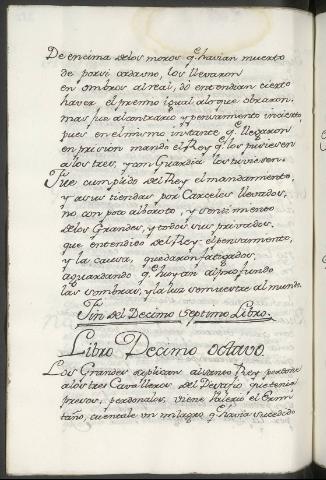 De encima de los moros q̃ havian muerto
de por si cada uno, los llevaron
en ombros al real, do entendian cierto
haver el premio igual alo que obraron,
mas fue al contrario y pensamiento incierto
pues en el mismo instante q̃ llegaron
en prision mandó el Rey q̃ los pusiesen
alos tres, y con Guardia los tuviesen.
Fue cumplido del Rey el mandamiento,
y a sus tiendas por Carceles llevados,
no con poco alboroto, y sentimiento
delos Grandes, y todos sus privados,
que entendido del Rey el pensamiento,
y la causa, quedaron fatigados,
aguardando q̃ huyan al profundo
las sombras, y la luz se muestre al mundo.
Fin del Decimo Septimo Libro.
Libro Decimo octavo
Los Grandes suplican al sancto Rey perdone
alos tres Cavalleros del Desafio que tenia
presos, perdonalos, viene Valerio el Ermi
taño, cuentale un milagro q̃ havia sucedido